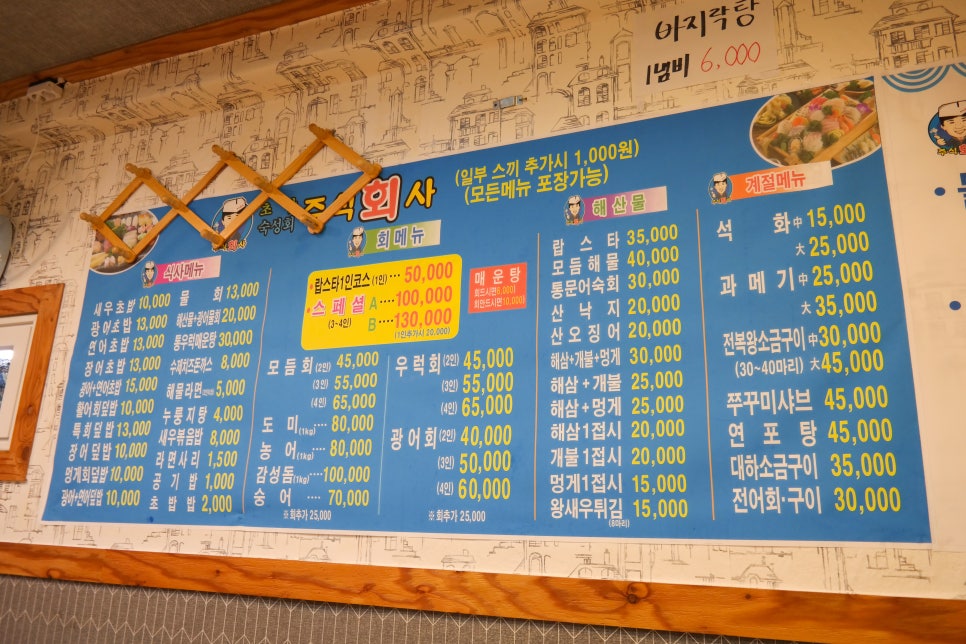 바지락탕
1냄비 6,000
초
숙성회
회사
(일부 스끼 추가시 1,000원)
(모든메뉴 포장가능)
식사메뉴
새우초밥 10,000
광어초밥 13,000
연어초밥 13,000
장어초밥 13,000
광어+연어초밥 15,000
활어회덮밥 10,000
특회덮밥 13,000
장어덮밥 10,000
멍게회덮밥 10,000
광어+연어덮밥 10,000
물회 13,000
해산물+광어물회 20,000
통우럭매운탕 30,000
수제치즈돈까스 8,000
해물라면 5,000
누룽지탕 4,000
새우볶음밥 8,000
라면사리 1,500
공기밥 1,000
초밥밥 2,000
회메뉴
랍스타1인코스 (1인) ··· 50,000
스페셜 A ···· 100,000
(3~4인) B ···· 130,000
(1인추가시 30,000)
매운탕
회드시면(6,000)
회안드시면(10,000)
모듬회 (2인) 45,000
(3인) 55,000
(4인) 65,000
도미 (1kg) ···· 80,000
농어 (1kg) ···· 80,000
감성돔 (1kg) ···· 100,000
숭어 ···· 70,000
※ 회추가 25,000
우럭회 (2인) 45,000
(3인) 55,000
(4인) 65,000
광어회 (2인) 40,000
(3인) 50,000
(4인) 60,000
※ 회추가 25,000
해산물
랍스타 35,000
모듬해물 40,000
통문어숙회 30,000
산낙지 20,000
산오징어 20,000
해삼+개불+멍게 30,000
해삼+개불 25,000
해삼+멍게 25,000
해삼1접시 20,000
개불1접시 20,000
멍게1접시 15,000
왕새우튀김 15,000
(8마리)
계절메뉴
석화 中 15,000
大 25,000
과메기 中 25,000
大 35,000
전복왕소금구이 中 30,000
(30~40마리) 大 45,000
쭈꾸미샤브 45,000
연포탕 45,000
대하소금구이 35,000
전어회·구이 30,000